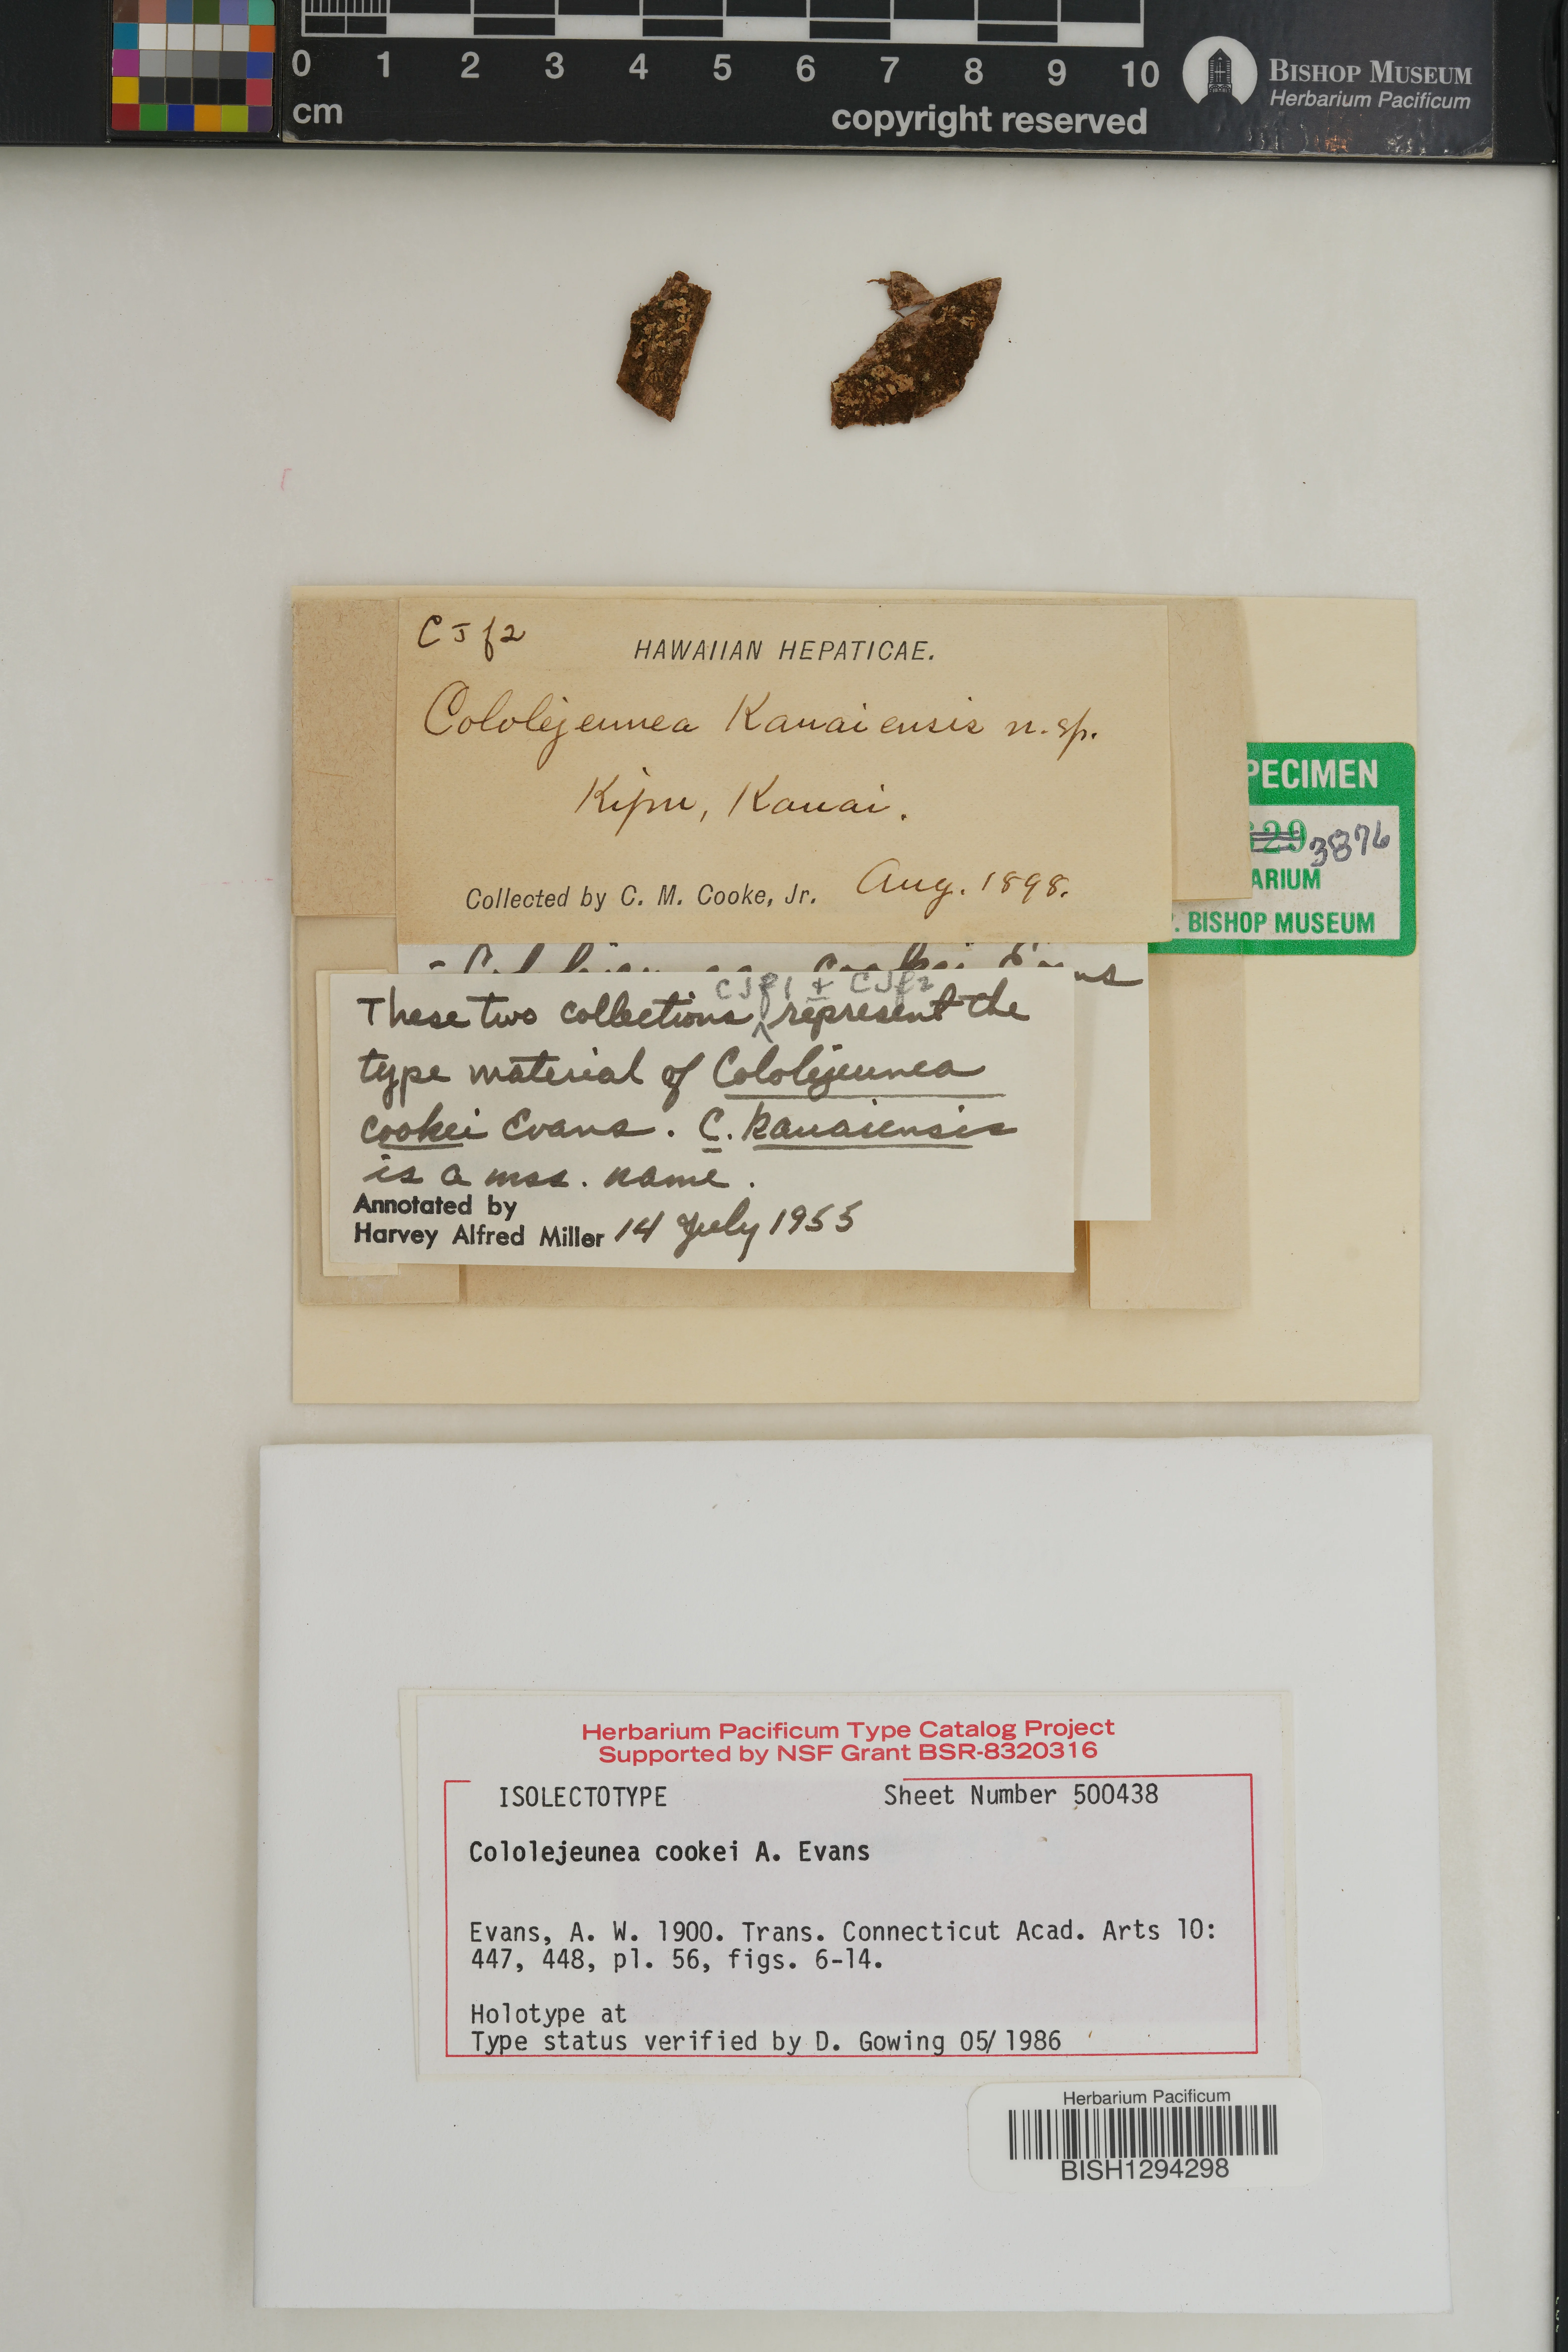 0 1 2 3 4 5 6 7 8 9 10
cm
copyright reserved
BISHOP MUSEUM
Herbarium Pacificum
C J f2
HAWAIIAN HEPATICAE.
Cololejeunea Kauaiensis n. sp.
Kipu, Kauai.
Collected by C. M. Cooke, Jr. Aug. 1898.
PECIMEN
629 3876
ARIUM
. BISHOP MUSEUM
cookei Evans
CJf1 + CJf2
These two collections represent the
type material of Cololejeunea
cookei Evans. C. kauaiensis
is a mss. name.
Annotated by
Harvey Alfred Miller 14 July 1955
Herbarium Pacificum Type Catalog Project
Supported by NSF Grant BSR-8320316
ISOLECTOTYPE Sheet Number 500438
Cololejeunea cookei A. Evans
Evans, A. W. 1900. Trans. Connecticut Acad. Arts 10:
447, 448, pl. 56, figs. 6-14.
Holotype at
Type status verified by D. Gowing 05/1986
Herbarium Pacificum
BISH1294298